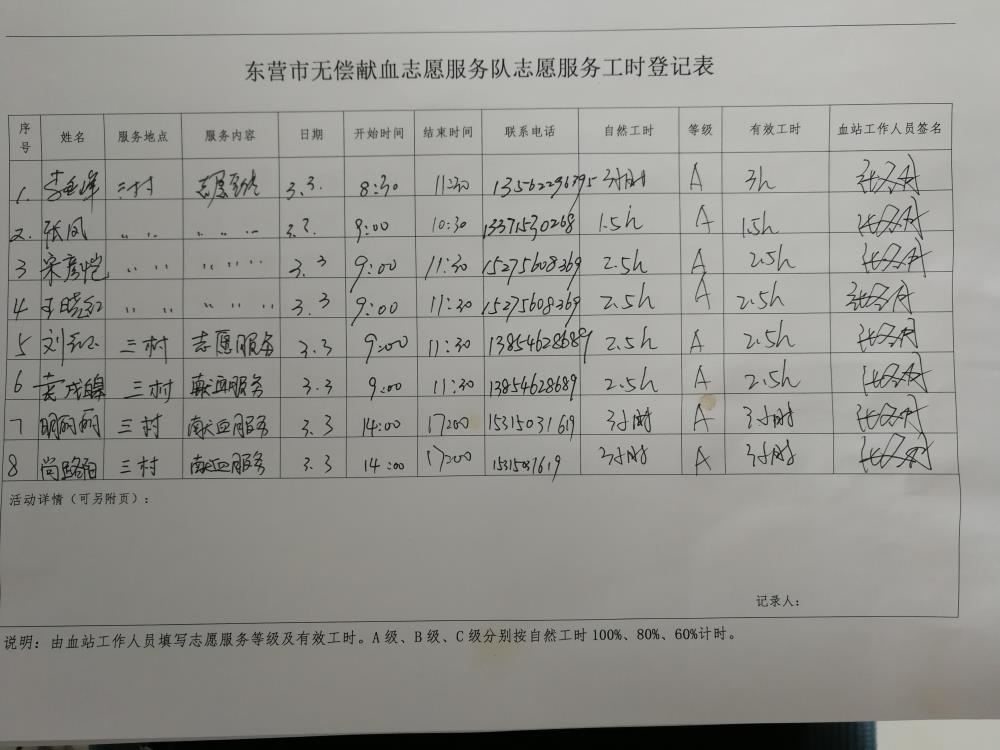 东营市无偿献血志愿服务队志愿服务工时登记表
序号 姓名 服务地点 服务内容 日期 开始时间 结束时间 联系电话 自然工时 等级 有效工时 血站工作人员签名
1. 三村 志愿 3.3. 8:30 11:30 13562296795 3小时 A 3h
2. 张凤 〃 〃 3.3. 9:00 10:30 13371530268 1.5h A 1.5h
3 宋彦恺 〃 〃 3.3 9:00 11:30 15275608369 2.5h A 2.5h
4 王晓红 〃 〃 3.3 9:00 11:30 15275608369 2.5h A 2.5h
5 刘 三村 志愿服务 3.3 9:00 11:30 13854628689 2.5h A 2.5h
6 三村 献血服务 3.3 9:00 11:30 13854628689 2.5h A 2.5h
7 明丽丽 三村 献血服务 3.3 14:00 17:00 15315031619 3小时 A 3小时
8 尚路 三村 献血服务 3.3 14:00 17:00 15315031619 3小时 A 3小时
活动详情（可另附页）：
记录人：
说明：由血站工作人员填写志愿服务等级及有效工时。A级、B级、C级分别按自然工时100%、80%、60%计时。